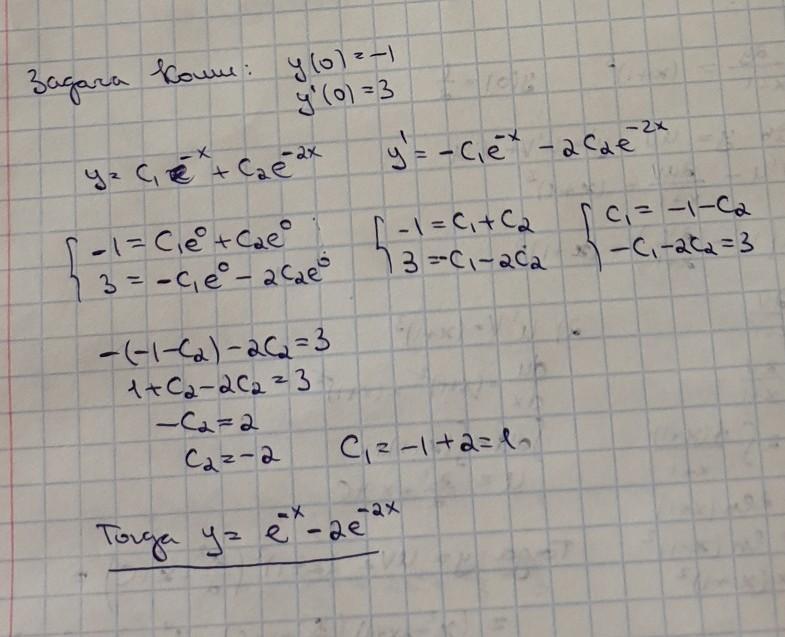 Задача Коши: y(0) = -1
y'(0) = 3
y = C₁e⁻ˣ + C₂e⁻²ˣ y' = -C₁e⁻ˣ - 2C₂e⁻²ˣ
{ -1 = C₁e⁰ + C₂e⁰ { -1 = C₁ + C₂ { C₁ = -1 - C₂
3 = -C₁e⁰ - 2C₂e⁰ 3 = -C₁ - 2C₂ -C₁ - 2C₂ = 3
-(-1-C₂) - 2C₂ = 3
1 + C₂ - 2C₂ = 3
-C₂ = 2
C₂ = -2 C₁ = -1 + 2 = 1
Тогда y = e⁻ˣ - 2e⁻²ˣ